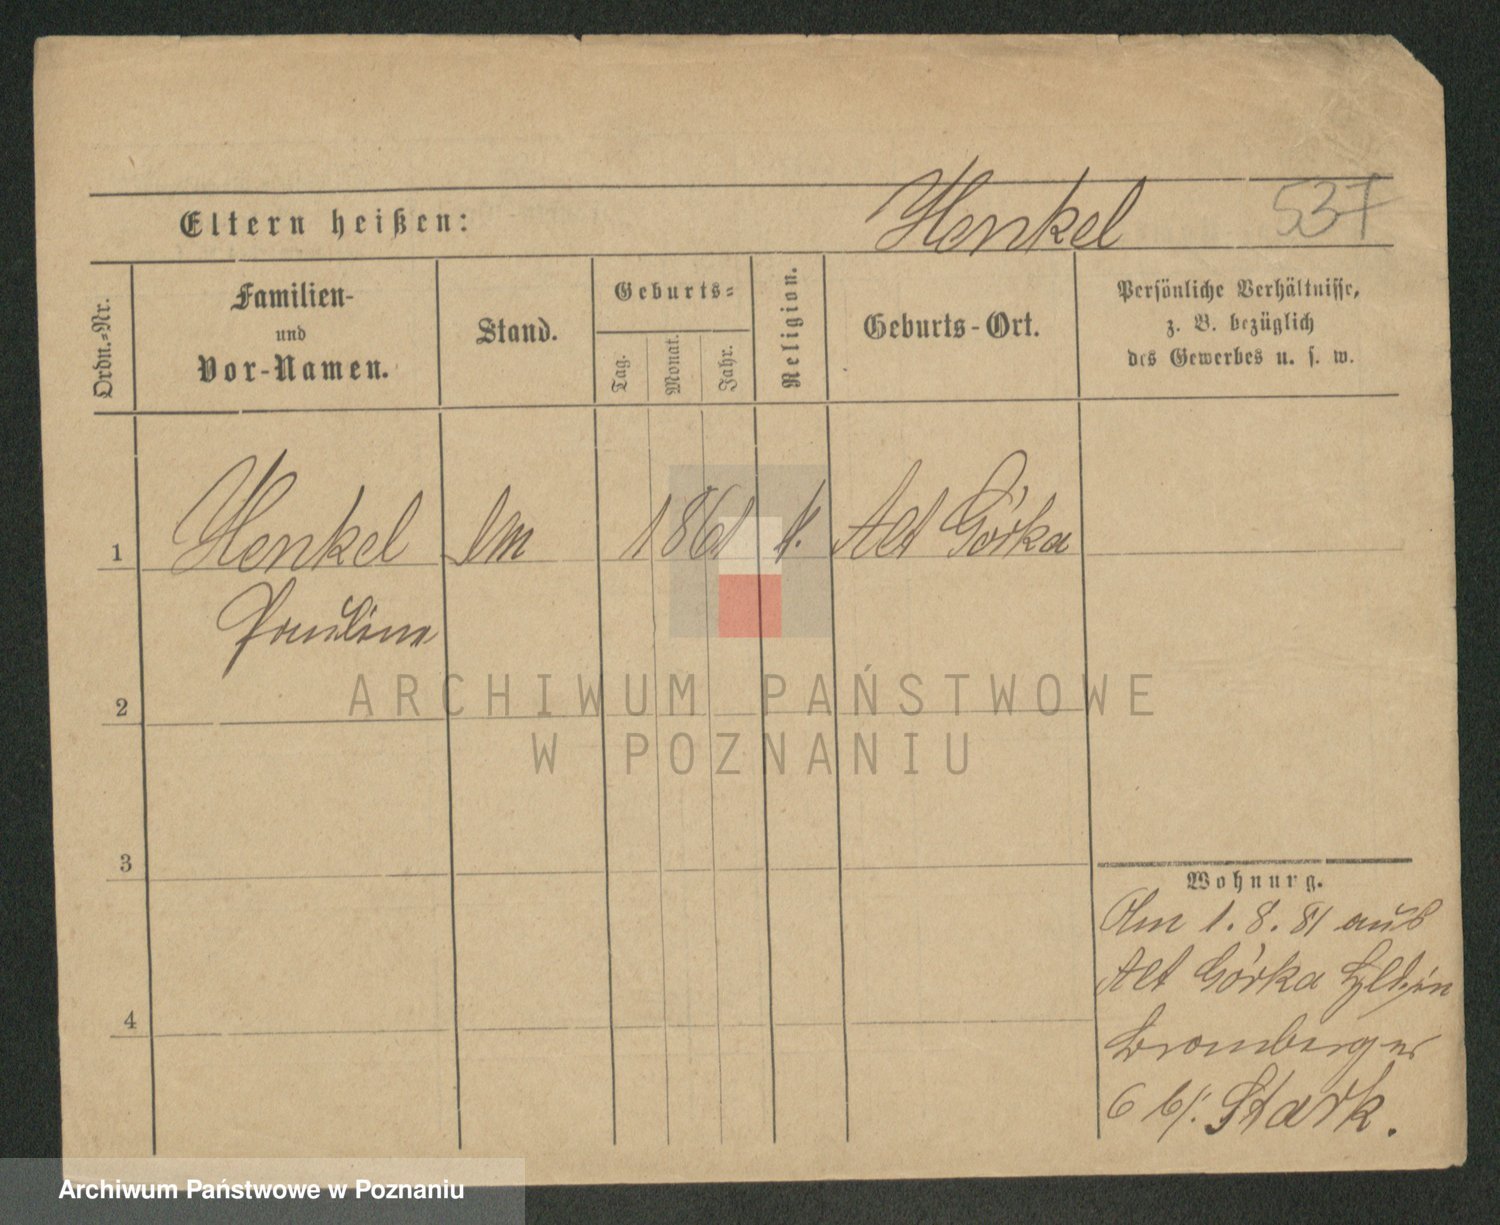 Eltern heißen:
Henkel
537
Ordn.-Nr.
Familien-
und
Vor-Namen.
Stand.
Geburts-
Tag.
Monat.
Jahr.
Religion.
Geburts-Ort.
Persönliche Verhältnisse,
z. B. bezüglich
des Gewerbes u. s. w.
1
Henkel
1861
k.
Alt Górka
Pauline
2
3
4
ARCHIWUM PAŃSTWOWE
W POZNANIU
Wohnung.
Am 1. 8. 81 aus
Alt Górka
Bromberger
6 b/. Stark.
Archiwum Państwowe w Poznaniu